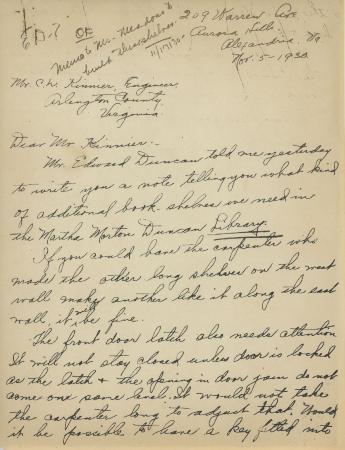 6 D-7 OF
Memo to Mr. Meadows to
build these shelves.
11/17/30.
209 Warren Ave
Aurora Hills
Alexandria, Va
Nov. 5 - 1930
Mr. C. L. Kinnier, Engineer,
Arlington County,
Virginia.
Dear Mr. Kinnier:-
Mr. Edward Duncan told me yesterday
to write you a note telling you what kind
of additional book-shelves we need in
the Martha Morton Duncan Library.
If you could have the carpenter who
made the other long shelves on the west
wall make another like it along the east
wall, it will be fine.
The front door latch also needs attention
It will not stay closed unless door is locked
as the latch & the opening in door jam do not
come on same level. It would not take
the carpenter long to adjust that. Would
it be possible to have a key fitted into